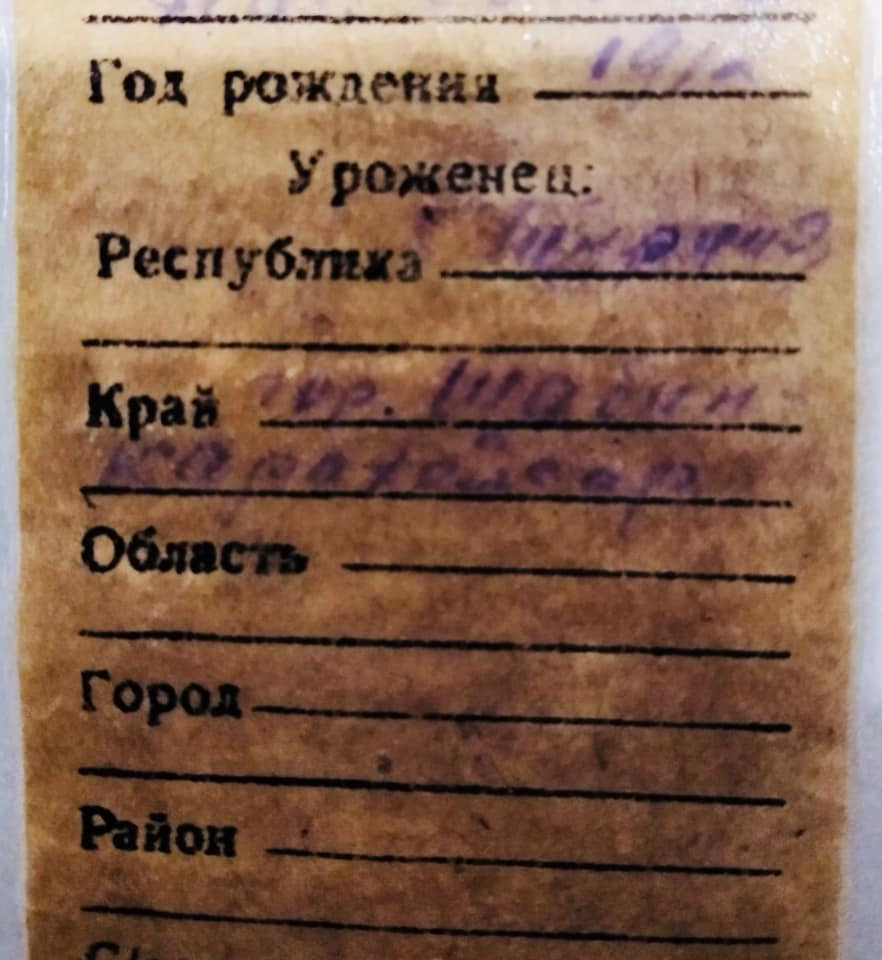 Год рождения
Уроженец:
Республика
Край гор. Шабин-
Карахисар
Область
Город
Район